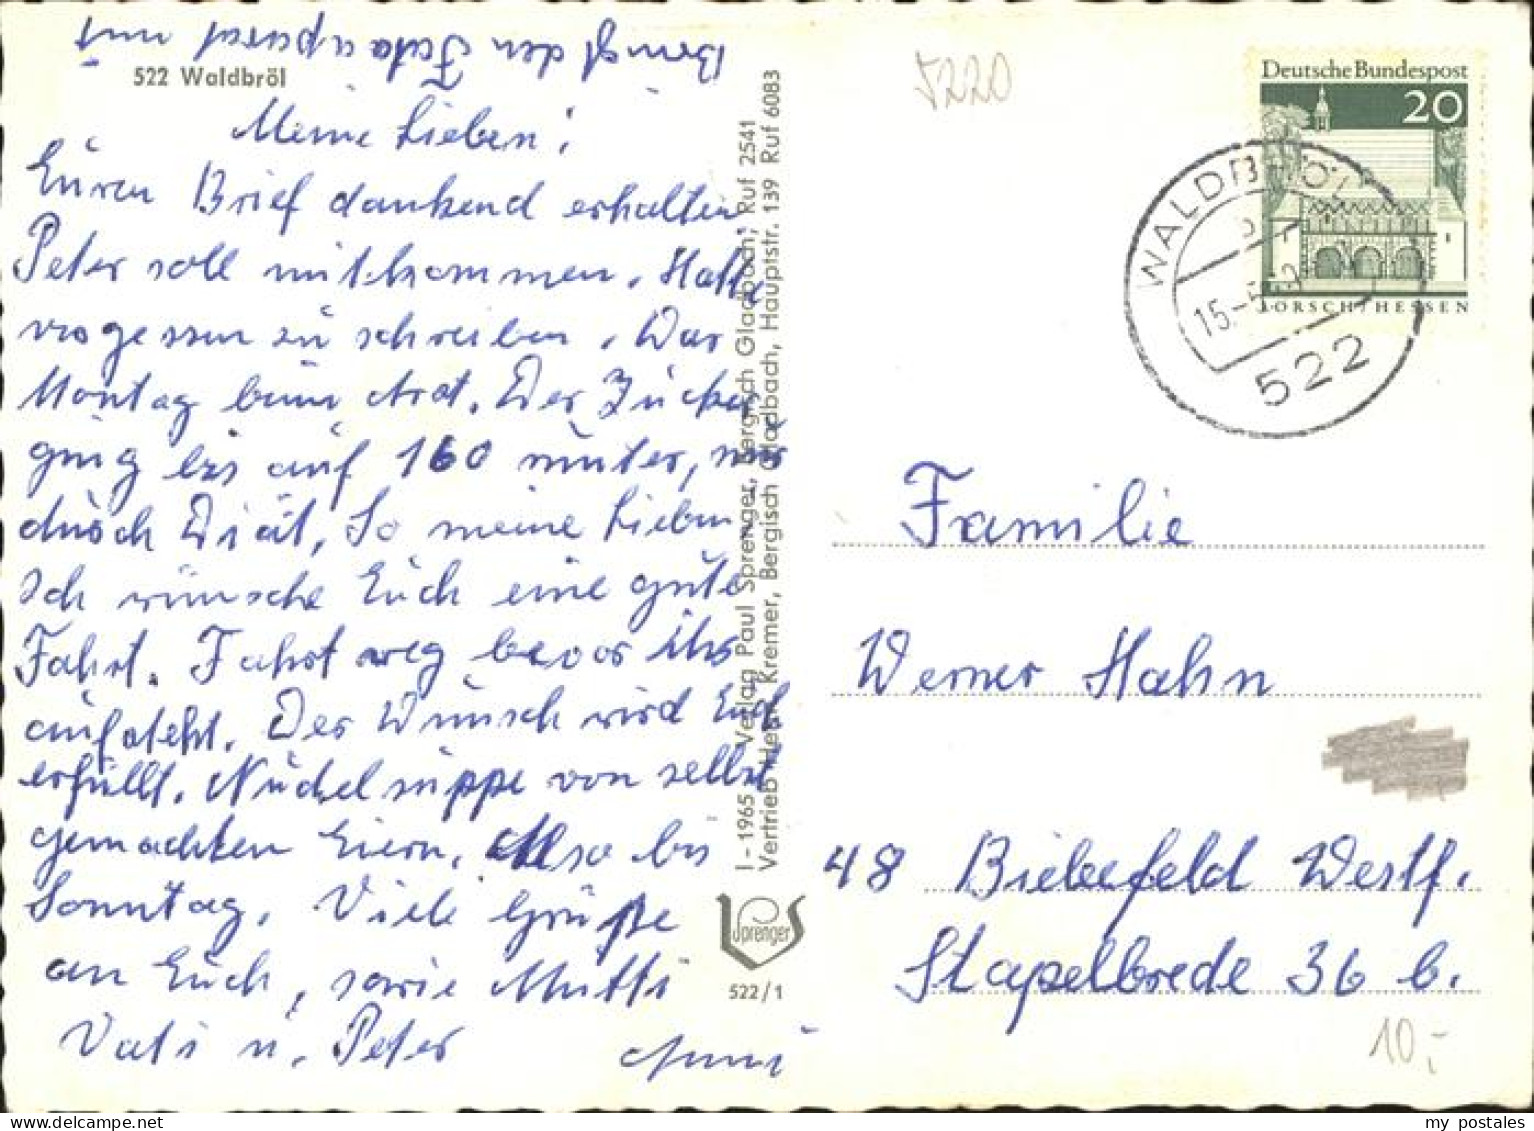 Bringt den Fotoapparat mit
522 Waldbröl
Meine Lieben!
Euren Brief dankend erhalten
Peter soll mitkommen. Hatte
vergessen zu schreiben. War
Montag beim Arzt. Der Zucker
ging bis auf 160 runter, nur
durch Diät. So meine Lieben
ich wünsche Euch eine gute
Fahrt. Fahrt weg bevor ihr
aufsteht. Der Wunsch wird Euch
erfüllt. Nudelsuppe von selbst
gemachten Eiern. Also bis
Sonntag. Viele Grüße
an Euch, sowie Mutti
Vati u. Peter
I-1965 Verlag Paul Sprenger, Bergisch Gladbach, Ruf 2541
Kremer, Bergisch Gladbach, Hauptstr. 139 Ruf 6083
Sprenger
522/1
5220
Deutsche Bundespost
20
LORSCH/HESSEN
WALDBRÖL
522
Familie
Werner Hahn
48 Bielefeld Westf.
Stapelbrede 36 b.
10,-
my postales